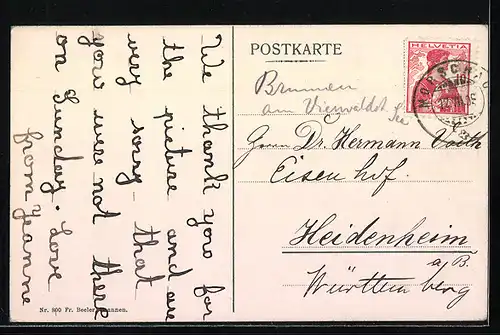 We thank you for
the picture and are
very sorry that
you were not there
on Sunday. Love
from Jeanne
POSTKARTE
HELVETIA
MORSCHACH
Brunnen
am Vierwaldst.
See
Herrn Dr. Hermann Voith
Eisenhof.
Heidenheim
a/B.
Württemberg
Nr. 800 Fr. Beeler, Brunnen.